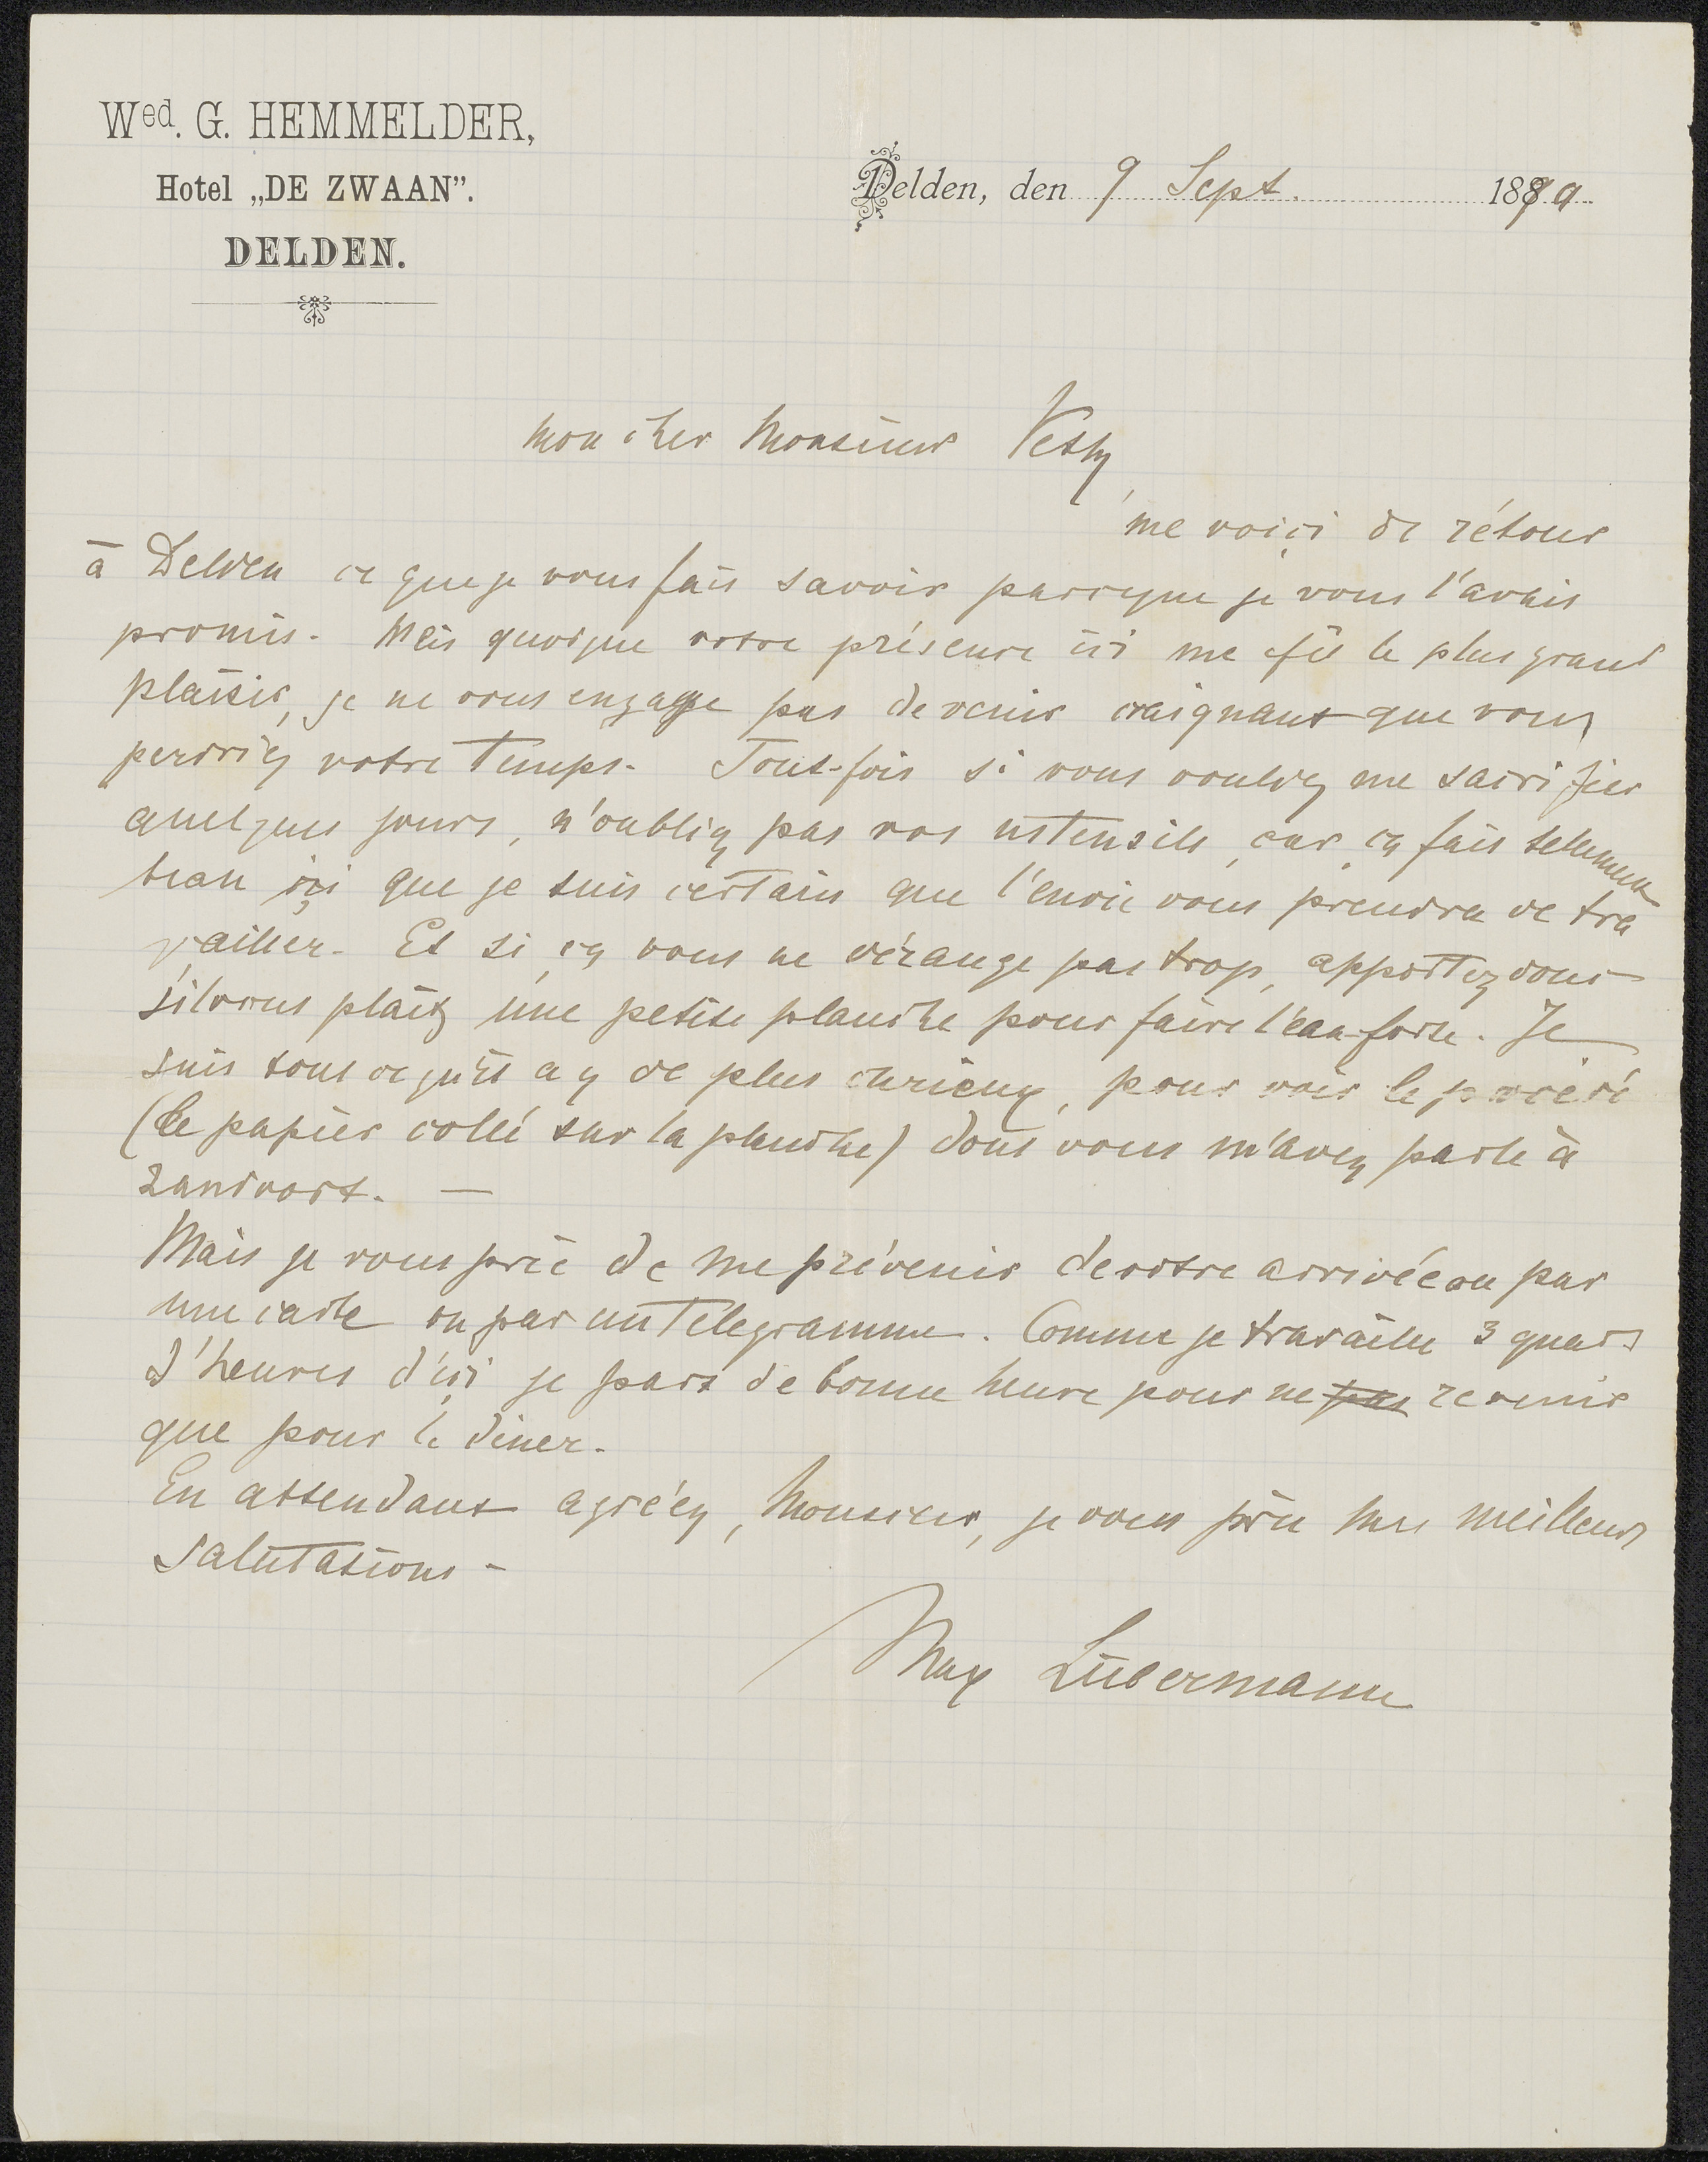 Wed. G. HEMMELDER,
Hotel „DE ZWAAN”.
DELDEN.
Delden, den 9 Sept. 1890
mon cher Monsieur Veth,
me voici de rétour
à Delden ce que je vous fais savoir parceque je vous l'avais
promis. Mais quoique votre présence ici me fit le plus grand
plaisir, je ne vous engagge pas de venir craignant que vous
perdriez votre temps. Tout-fois si vous voulez me sacrifier
quelques jours, n'oubliez pas vos ustensils, car ça fait tellement
beau içi que je suis certain que l'envie vous prendra de tra
vailler. Et si ça vous ne dérange pas trop, apportez vous
s'ilvous plaitz une petite planche pour faire l'eau-forte. Je
suis tout ce qu'il a y de plus curieux, pour voir le procédé
(le papier collé sur la planche) dont vous m'avez parlé à
Zandvort. —
Mais je vous prie de me prévenir de votre arrivée ou par
une carte ou par un télegramme. Comme je travaille 3 quarts
d'heures d'içi je pars de bonne heure pour ne pas revenir
que pour le diner.
En attendant agréez, Monsieur, je vous prie mes meilleurs
salutations –
Max Liebermann